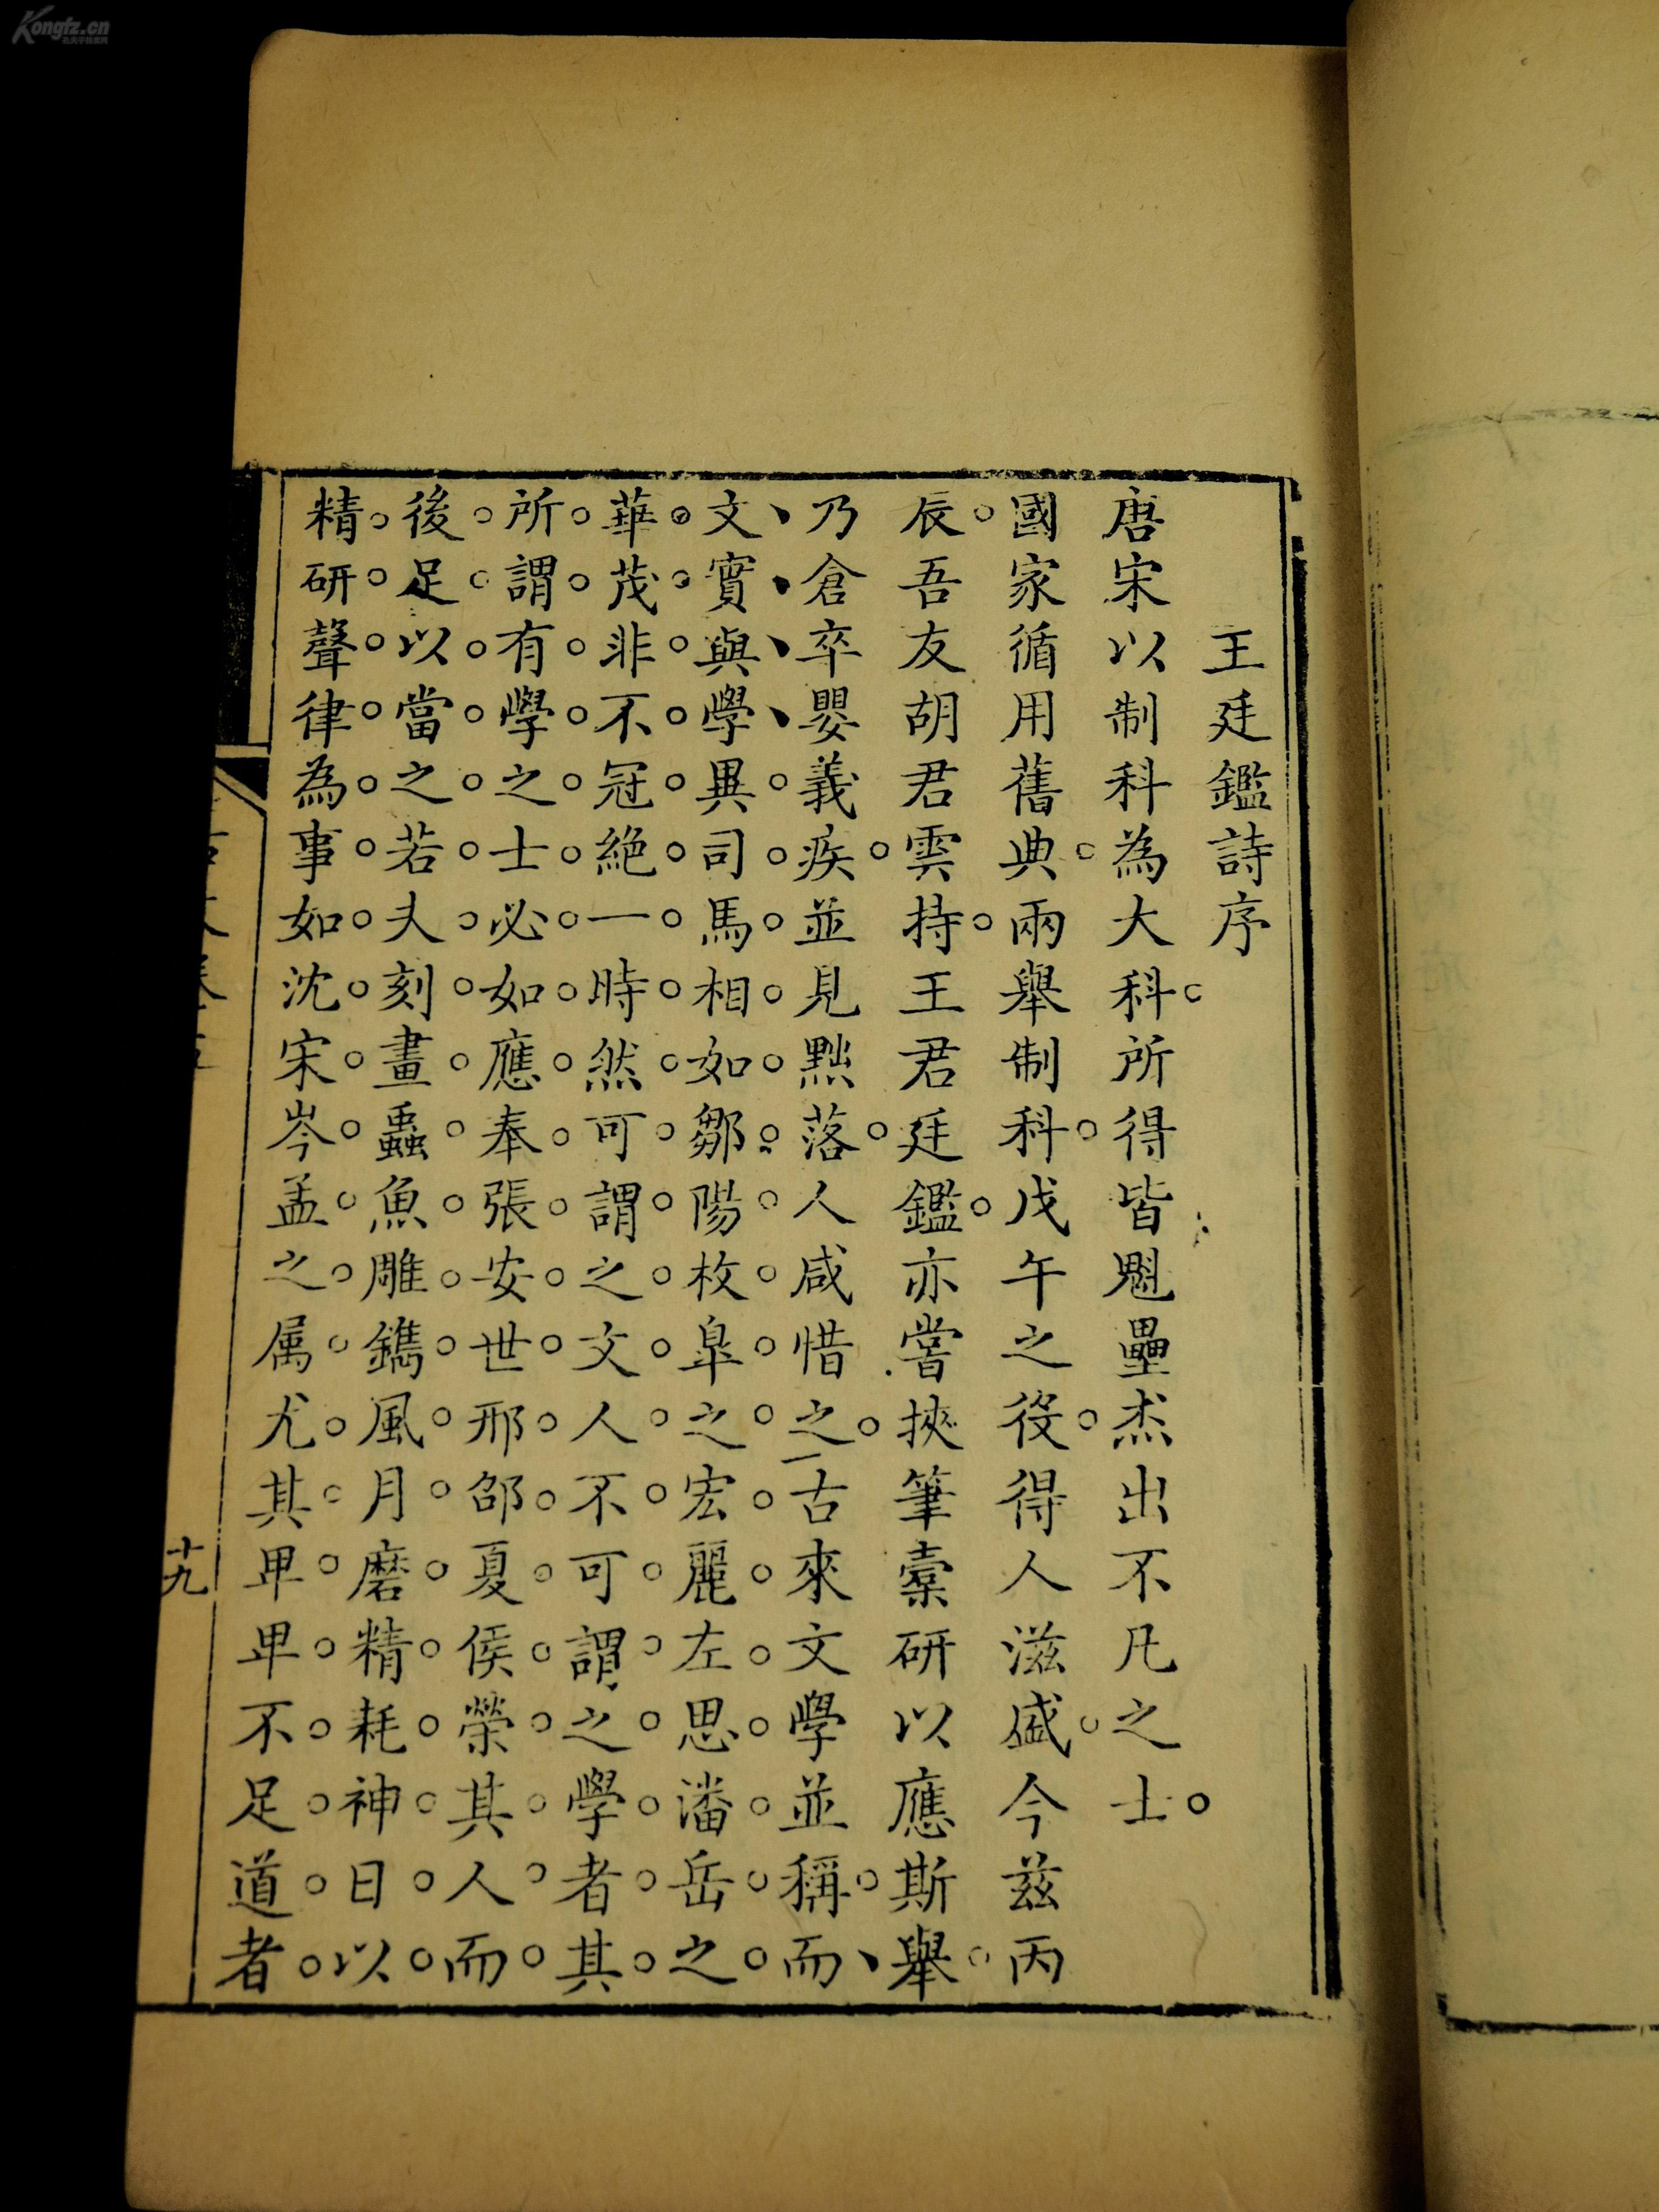 王廷鑑詩序
唐宋以制科為大科。所得皆魁壘杰出不凡之士。
國家循用舊典。兩舉制科。戊午之役。得人滋盛。今茲丙
辰。吾友胡君雲持。王君廷鑑。亦嘗挾筆橐研以應斯舉。
乃倉卒嬰義疾。並見黜落。人咸惜之。古來文學並稱。而
文實與學異。司馬相如鄒陽枚皐之宏麗。左思潘岳之
華茂。非不冠絶一時。然可謂之文人。不可謂之學者。其
所謂有學之士。必如應奉張安世邢邵夏侯榮其人。而
後足以當之。若夫刻畫蟲魚。雕鐫風月。磨精耗神。日以
精研聲律為事。如沈宋岑孟之属。尤其卑卑不足道者。
十九
Kongfz.cn